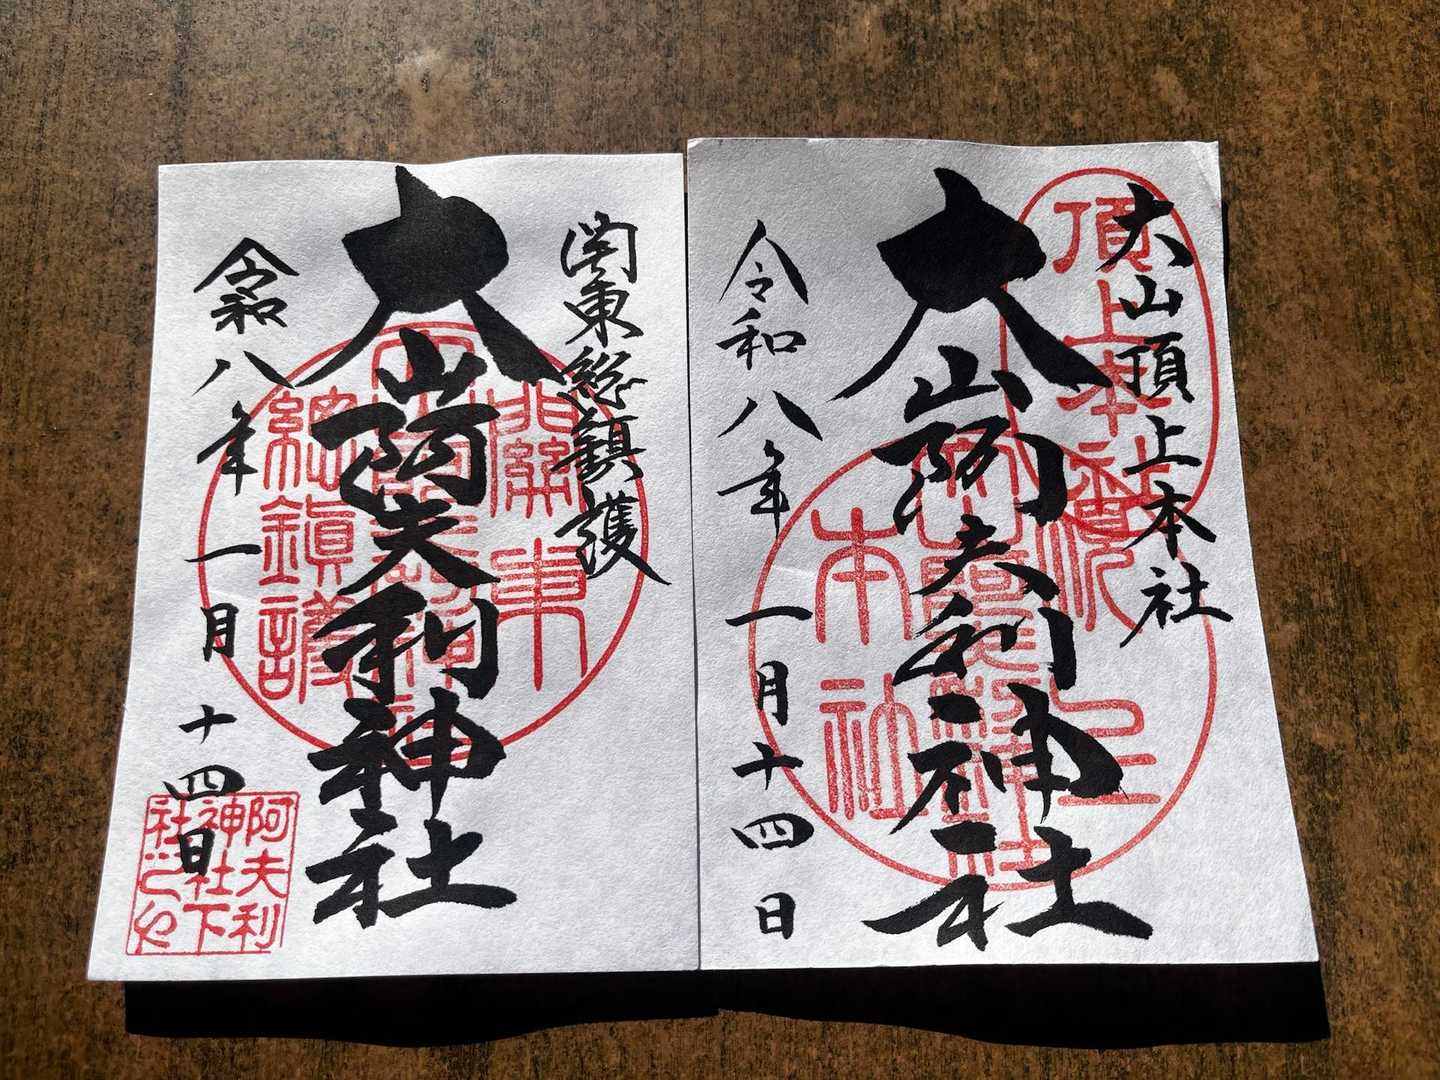 関東総鎮護
大山阿夫利神社
令和八年一月十四日
關東
總鎮護
阿夫利
神社下
社
大山頂上本社
大山阿夫利神社
令和八年一月十四日
頂上本社
本社